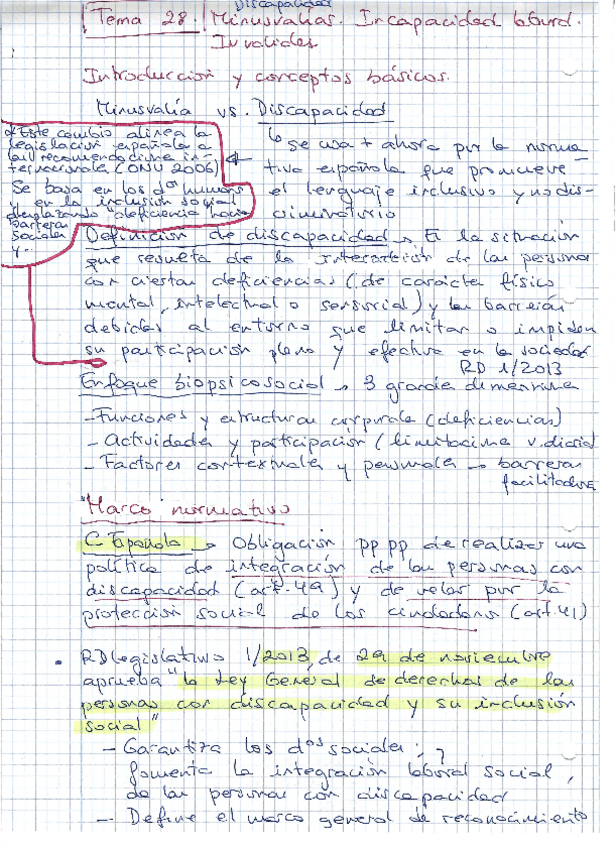 Discapacidad
Tema 28. Minusvalías. Incapacidad laboral.
Invalidez
Introducción y conceptos básicos.
Minusvalía vs. Discapacidad
Este cambio alinea la
legislación española a
las recomendaciones in-
ternacionales (ONU 2006)
Se basa en los dºs humanos
y en la inclusión social
desplazando "deficiencia hacia
barreras
sociales
y.
se usa + ahora por la norma-
tiva española que promueve
el lenguaje inclusivo y no dis-
criminatorio
Definición de discapacidad → Es la situación
que resulta de la interacción de las personas
con ciertas deficiencias (de carácter físico
mental, intelectual o sensorial) y las barreras
debidas al entorno que limitan o impiden
su participación plena y efectiva en la sociedad
RD 1/2013
Enfoque biopsicosocial → 3 grandes dimensiones
- Funciones y estructuras corporales (deficiencias)
- Actividades y participación (limitaciones v. diaria)
- Factores contextuales y personales → barreras
facilitadores
"Marco normativo
C Española → Obligación pp pp de realizar una
política de integración de las personas con
discapacidad (art. 49) y de velar por la
protección social de los ciudadanos (art. 41)
• RD legislativo 1/2013, de 29 de noviembre
aprueba "la Ley General de derechos de las
personas con discapacidad y su inclusión
social"
- Garantiza los dºs sociales; y
fomenta la integración laboral social,
de las personas con discapacidad
- Define el marco general de reconocimiento